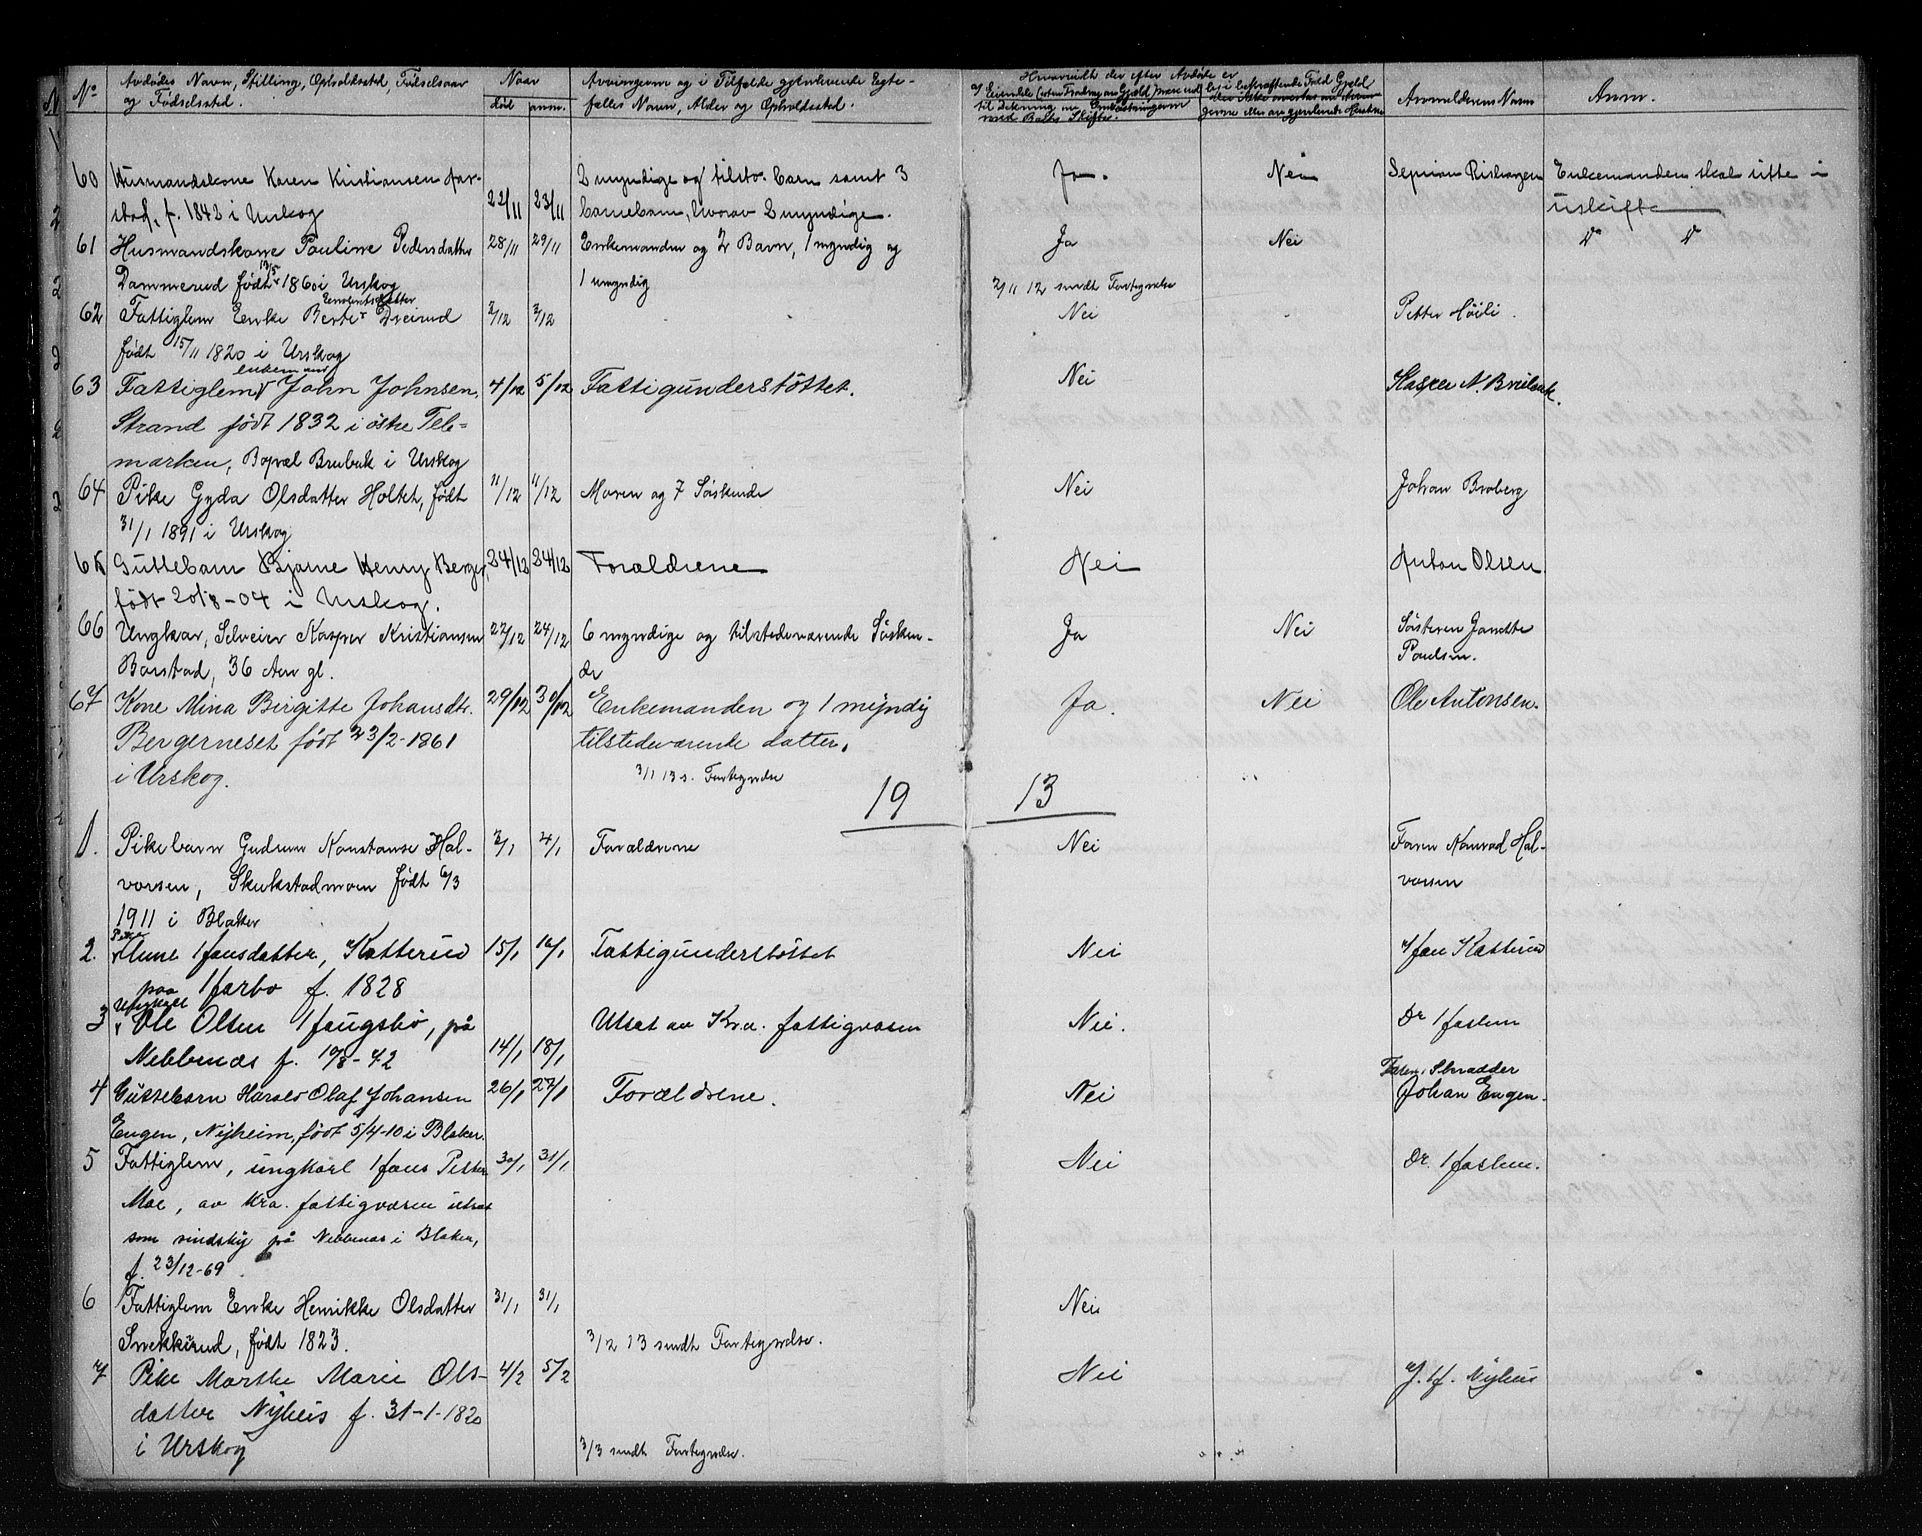 No Avdødes Navn, Stilling, Opholdssted, Fødselsaar Naar Arvingerne og i Tilfælde gjenlevende Egte- Hvorvidt der efter Avdøde er
og Fødselssted. død anm. fælles Navn, Alder og Opholdssted. Anmelderens Navn Anm.
60 Husmandskone Karen Kristiansen 2 myndige og tilstv. barn samt 3 Ja. Nei Enkemanden skal sitte i
f. 1842 i Urskog 22/11 23/11 barnebarn, hvorav 2 myndige. uskifte
61 Husmandskone Pauline Pedersdatter 28/11 29/11 Enkemanden og 2 Barn, 1 myndig og Ja Nei
Dammerud født 13/5 1860 i Urskog 1 umyndig 2/11 12 sendt Fortegnelse
62 Fattiglem Enke Berte Dreirud 3/12 3/12 Nei Petter Høili.
født 15/11 1820 i Urskog
enkemand
63 Fattiglem John Johnsen 4/12 5/12 Fattigunderstöttet. Nei Kasper N. Brubak.
Strand født 1832 i östre Tele-
marken, Bopæl Brubak i Urskog
64 Pike Gyda Olsdatter Holtet, født 11/12 11/12 Moren og 7 Söskende Nei Johan Broberg
31/1 1891 i Urskog
65 Guttebarn Bjarne Henry Berger, 24/12 24/12 Forældrene Nei Anton Olsen
født 20/8-04 i Urskog.
66 Ungkar, Selveier Kasper Kristiansen 22/12 24/12 6 myndige og tilstedeværende Sösken- Ja Nei Søsteren
Borstad, 36 Aar gl. de Paulsen.
67 Kone Mina Birgitte Johansdtr. 29/12 30/12 Enkemanden og 1 myndig Ja. Nei Ole Antonsen.
Bergerneset født 23/2-1861 tilstedeværende datter.
i Urskog. 3/1 13 s. Fortegnelse
19 13
1. Pikebarn Gudrun Konstanse Hal- 3/1 4/1 Forældrene Nei Faren Konrad Hal-
vorsen, Skukstadmoen født 6/3 vorsen
1911 i Blaker
Pike
2. Anne Hansdatter, Katterud 15/1 16/1 Fattigunderstöttet Nei Katterud
paa Harbo f. 1828
Ungkarl
3 Ole Olsen Haugsbö, på Utsat av Kr.a. fattigvæsen Nei. Dr Haslem
Nebbenæs f. 19/8-42 14/1 18/1
4 Guttebarn Harald Olaf Johansen 26/1 27/1 Forældrene. Nei Faren, Skrædder Johan Engen.
Engen, Nyheim, født 5/4-10 i Blaker.
5 Fattiglem, ungkarl Hans Petter 30/1 31/1 Nei Dr. Haslem.
Moe, av Kra. fattigvæsen utsat
som sindsyg på Nebbenæs i Blaker,
f. 23/12-69.
6 Fattiglem Enke Henrikke Olsdatter 31/1 31/1 Nei
Snekkerud, født 1823. 3/2 13 sendt Fortegnelse.
7 Pike Marthe Marie Ols- 4/2 5/2 Nei J. H. Nyhus
datter Nyhus f. 31-1-1820
i Urskog 3/3 sendt Fortegnelse.